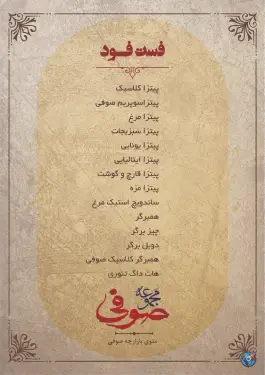 فست فود
پیتزا کلاسیک
پیتزاسوپریم صوفی
پیتزا مرغ
پیتزا سبزیجات
پیتزا یونانی
پیتزا ایتالیایی
پیتزا قارچ و گوشت
پیتزا مزه
ساندویچ استیک مرغ
همبرگر
چیز برگر
دوبل برگر
همبرگر کلاسیک صوفی
هات داگ تنوری
مجموعه
صوفی
منوی بازارچه صوفی